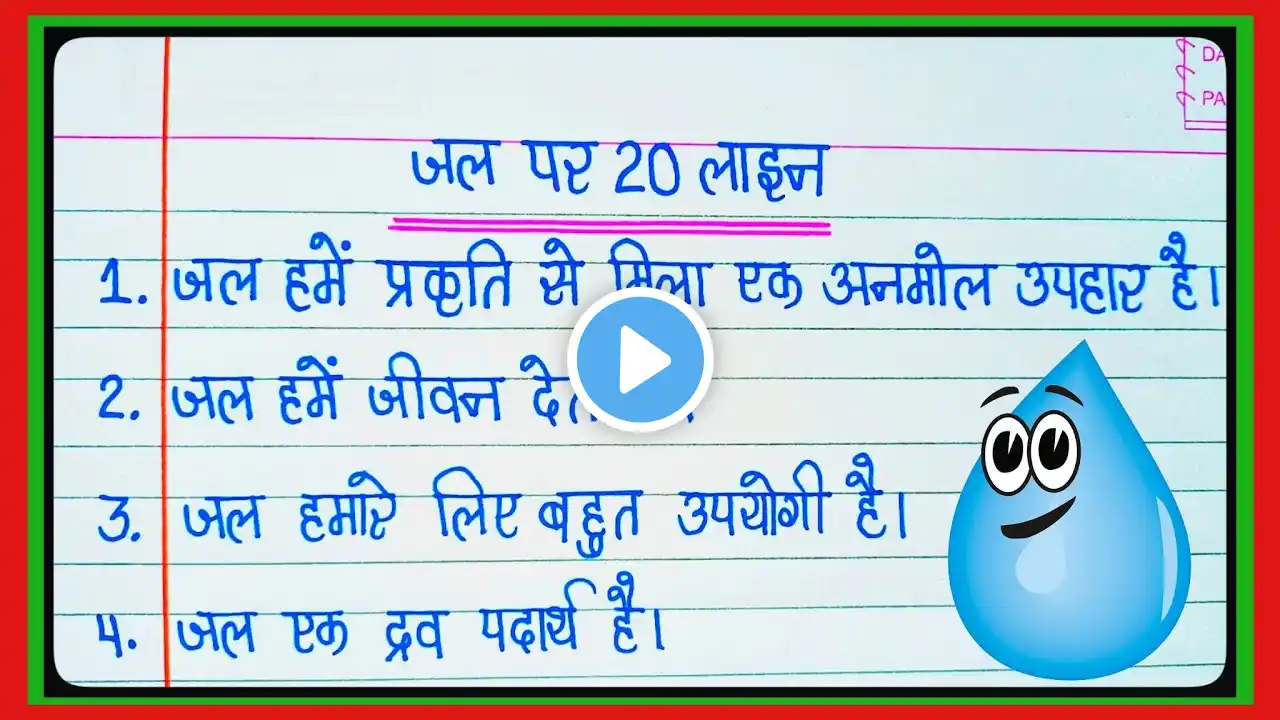 DA
PA
जल पर 20 लाइन
1. जल हमें प्रकृति से मिला एक अनमोल उपहार है।
2. जल हमें जीवन
3. जल हमारे लिए बहुत उपयोगी है।
4. जल एक द्रव पदार्थ है।